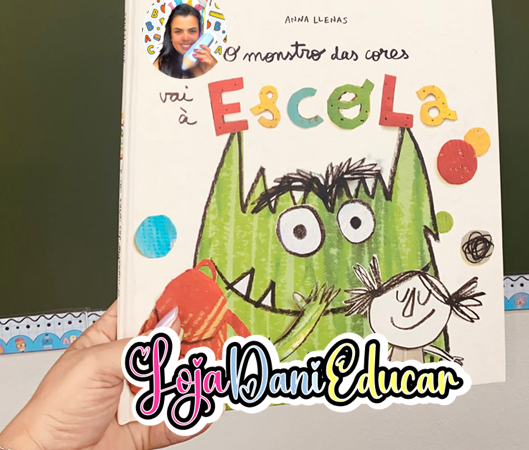 ANNA LLENAS
O monstro das cores
vai
à
ESCOLA
LojaDaniEducar